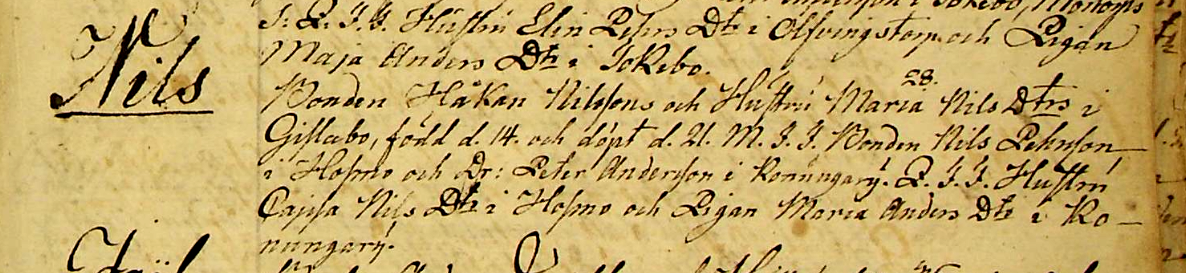 S: Q. I. G. Hustru Elin Pehrs Dtr i Elfvingstorp och Pigan
Maja Anders Dtr i Iökebo.
Nils
28.
Bonden Håkan Nilssons och Hustru Maria Nils Dtrs i
Gisslabo, född d. 14. och döpt d. 21. M. I. I. Bonden Nils Pehrson
i Hosmo och Dr: Peter Anderson i Konungary. Q. I. I. Hustru
Cajsa Nils Dtr i Hosmo och Pigan Maria Anders Dtr i Ko—
nungary.